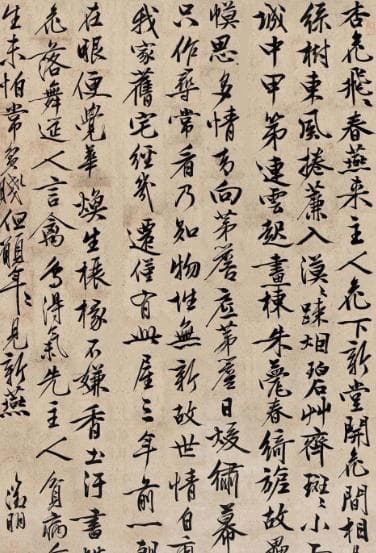 杏花飛〻春燕来主人花下新堂開花間相
綠樹東風捲簾入漠〻踈烟碧艸齊斑〻小
城中甲第連雲起畫棟朱甍春綺旎故
思多情向茅簷茅屋日煖繡幕
只作尋常看乃知物性無新故世情自
我家舊宅經幾遷僅有此屋三年前一朝
在眼便覺華煥生榱椽不嫌香土汙書
花落舞筵人言禽鳥得氣先主人貧病
生未怕常貧賤但願年〻見新燕 徵明